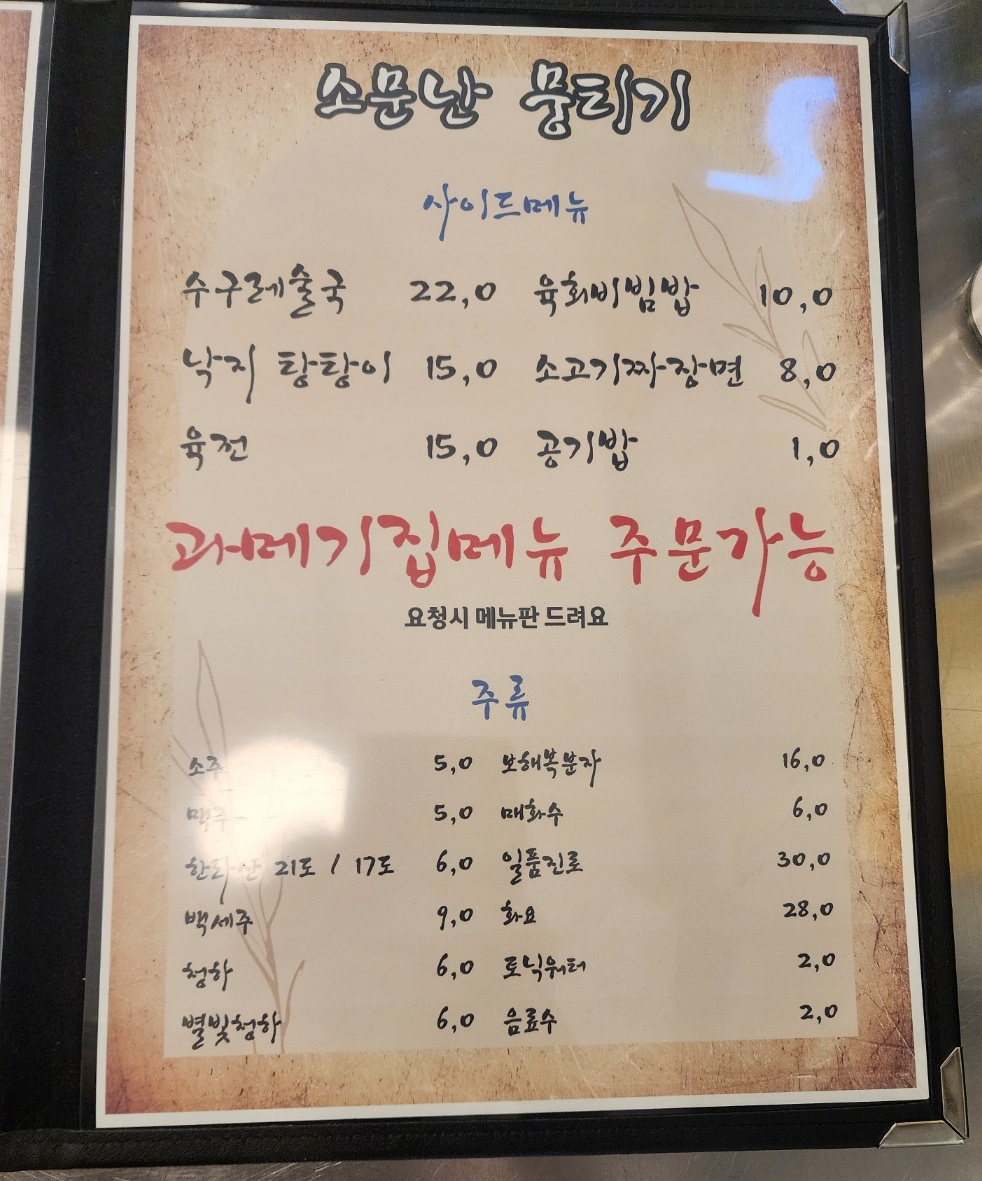 소문난 뭉티기
사이드메뉴
수구레술국 22,0 육회비빔밥 10,0
낙지 탕탕이 15,0 소고기짜장면 8,0
육전 15,0 공기밥 1,0
과메기집메뉴 주문가능
요청시 메뉴판 드려요
주류
소주 5,0 보해복분자 16,0
맥주 5,0 매화수 6,0
한라산 21도 / 17도 6,0 일품진로 30,0
백세주 9,0 화요 28,0
청하 6,0 토닉워터 2,0
별빛청하 6,0 음료수 2,0